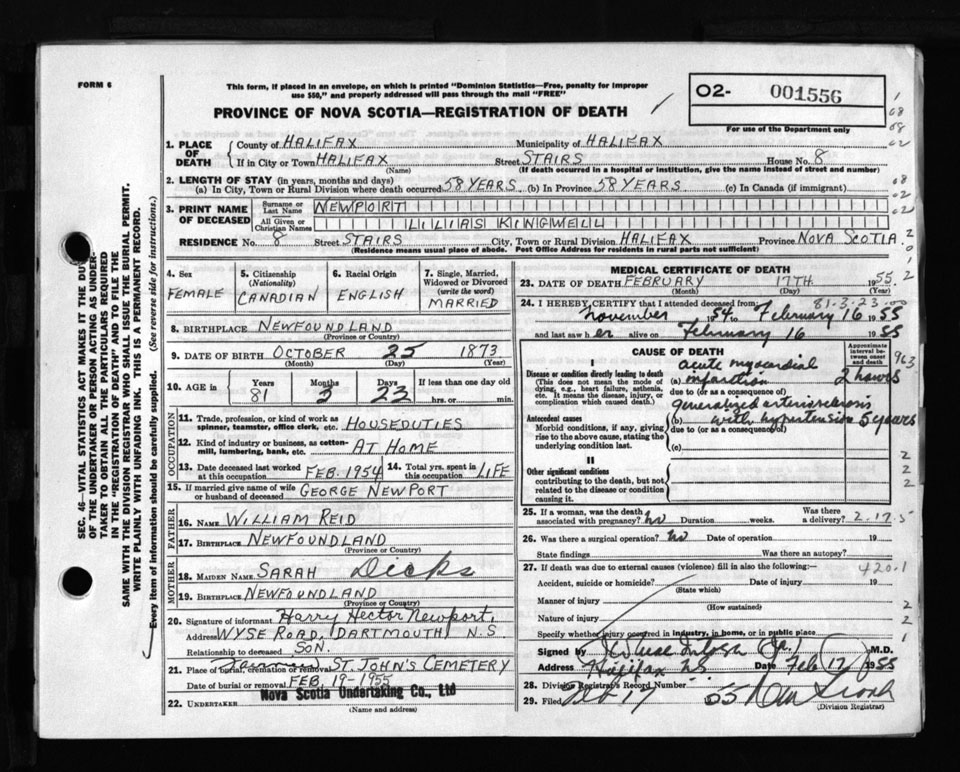 FORM 6
This form, if placed in an envelope, on which is printed "Dominion Statistics—Free, penalty for improper
use $50," and properly addressed will pass through the mail "FREE"
PROVINCE OF NOVA SCOTIA—REGISTRATION OF DEATH
02- 001556
For use of the Department only
1. PLACE OF DEATH
County of HALIFAX Municipality of HALIFAX
If in City or Town HALIFAX Street STAIRS House No. 8
(Name) (If death occurred in a hospital or institution, give the name instead of street and number)
2. LENGTH OF STAY (in years, months and days)
(a) In City, Town or Rural Division where death occurred 58 YEARS (b) In Province 58 YEARS (c) In Canada (if immigrant)
3. PRINT NAME OF DECEASED
Surname or Last Name NEWPORT
All Given or Christian Names LILIAS KINGWELL
RESIDENCE No. 8 Street STAIRS City, Town or Rural Division HALIFAX Province NOVA SCOTIA
(Residence means usual place of abode. Post Office Address for residents in rural parts not sufficient)
4. Sex
FEMALE
5. Citizenship (Nationality)
CANADIAN
6. Racial Origin
ENGLISH
7. Single, Married, Widowed or Divorced (write the word)
MARRIED
8. BIRTHPLACE NEWFOUNDLAND
(Province or Country)
9. DATE OF BIRTH OCTOBER 25 1873
(Month) (Day) (Year)
10. AGE in
Years Months Days If less than one day old
81 3 23 hrs. or min.
OCCUPATION
11. Trade, profession, or kind of work as
spinner, teamster, office clerk, etc. HOUSEDUTIES
12. Kind of industry or business, as cotton-
mill, lumbering, bank, etc. AT HOME
13. Date deceased last worked
at this occupation FEB. 1954 14. Total yrs. spent in
this occupation LIFE
15. If married give name of wife
or husband of deceased GEORGE NEWPORT
FATHER
16. NAME WILLIAM REID
17. BIRTHPLACE NEWFOUNDLAND
(Province or Country)
MOTHER
18. MAIDEN NAME SARAH Dicks
19. BIRTHPLACE NEWFOUNDLAND
(Province or Country)
20. Signature of informant Harry Hector Newport,
Address WYSE ROAD, DARTMOUTH N.S
Relationship to deceased SON.
21. Place of burial, cremation or removal ST. JOHN'S CEMETERY
Date of burial or removal FEB. 19-1955
Nova Scotia Undertaking Co., Ltd
22. UNDERTAKER
(Name and address)
MEDICAL CERTIFICATE OF DEATH
23. DATE OF DEATH FEBRUARY 17TH 1955
(Month) (Day)
81-3-23
24. I HEREBY CERTIFY that I attended deceased from:
November 1954 to February 16 1955
and last saw her alive on February 16 1955
CAUSE OF DEATH
Approximate interval between onset and death
I
Disease or condition directly leading to death
(This does not mean the mode of
dying, e.g., heart failure, asthenia,
etc. It means the disease, injury, or
complication which caused death.)
acute myocardial
(a) infarction 2 hours
due to (or as a consequence of)
Antecedent causes
Morbid conditions, if any, giving
rise to the above cause, stating the
underlying condition last.
generalized arteriosclerosis
(b) with hypertension 5 years
due to (or as a consequence of)
(c)
II
Other significant conditions
contributing to the death, but not
related to the disease or condition
causing it.
25. If a woman, was the death
associated with pregnancy? no Duration weeks. Was there
a delivery? 2.17.5
26. Was there a surgical operation? no Date of operation 19
State findings Was there an autopsy?
27. If death was due to external causes (violence) fill in also the following:— 420.1
Accident, suicide or homicide? Date of injury 19
(State which)
Manner of injury
(How sustained)
Nature of injury
Specify whether injury occurred in industry, in home, or in public place
Signed by M.D.
Address Halifax NS Date Feb 17 1955
28. Division Registrar's Record Number
29. Filed Feb 17 55
(Division Registrar)
SEC. 46—VITAL STATISTICS ACT MAKES IT THE DUTY
OF THE UNDERTAKER OR PERSON ACTING AS UNDER-
TAKER TO OBTAIN ALL THE PARTICULARS REQUIRED
IN THE "REGISTRATION OF DEATH" AND TO FILE THE
SAME WITH THE DIVISION REGISTRAR WHO SHALL ISSUE THE BURIAL PERMIT.
WRITE PLAINLY WITH UNFADING INK. THIS IS A PERMANENT RECORD.
Every item of information should be carefully supplied. (See reverse side for instructions.)